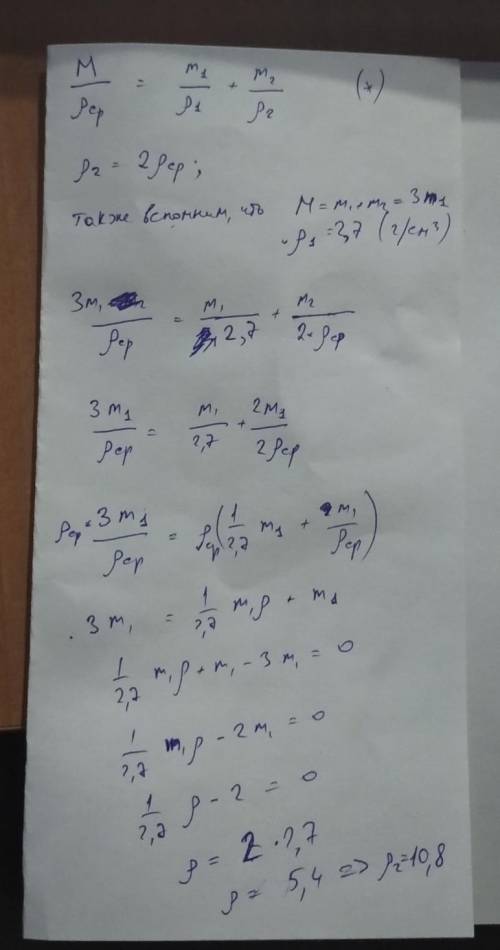 M/ρср = m₁/ρ₁ + m₂/ρ₂ (*)
ρ₂ = 2ρср;
также вспомним, что M = m₁ + m₂ = 3m₁
ρ₁ = 2,7 (г/см³)
3m₁/ρср = m₁/2,7 + m₂/2·ρср
3m₁/ρср = m₁/2,7 + 2m₁/2ρср
ρср · 3m₁/ρср = ρср(1/2,7 m₁ + m₁/ρср)
3m₁ = 1/2,7 m₁ρ + m₁
1/2,7 m₁ρ + m₁ - 3m₁ = 0
1/2,7 m₁ρ - 2m₁ = 0
1/2,7 ρ - 2 = 0
ρ = 2 · 2,7
ρ = 5,4 => ρ₂ = 10,8